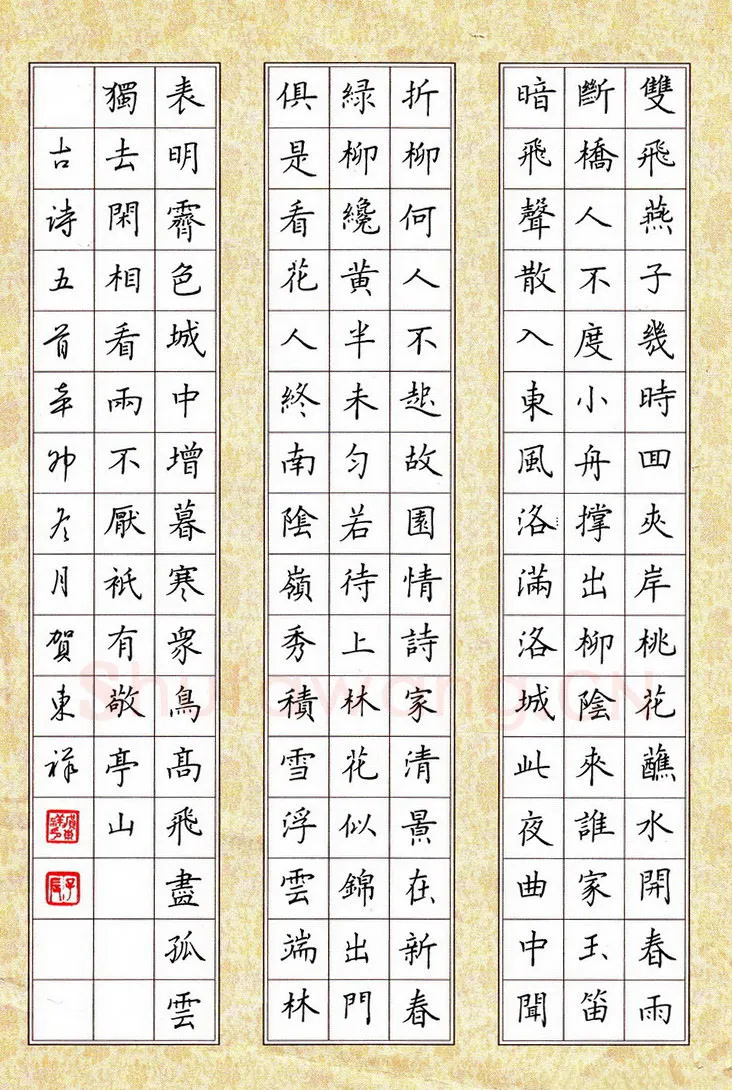 雙飛燕子幾時回夾岸桃花蘸水開春雨
斷橋人不度小舟撐出柳陰來誰家玉笛
暗飛聲散入東風洛滿洛城此夜曲中聞
折柳何人不起故園情詩家清景在新春
綠柳纔黃半未勻若待上林花似錦出門
俱是看花人終南陰嶺秀積雪浮雲端林
表明霽色城中增暮寒衆鳥高飛盡孤雲
獨去閑相看兩不厭祇有敬亭山
古诗五首辛卯冬月賀東祥
Shufawang.CN